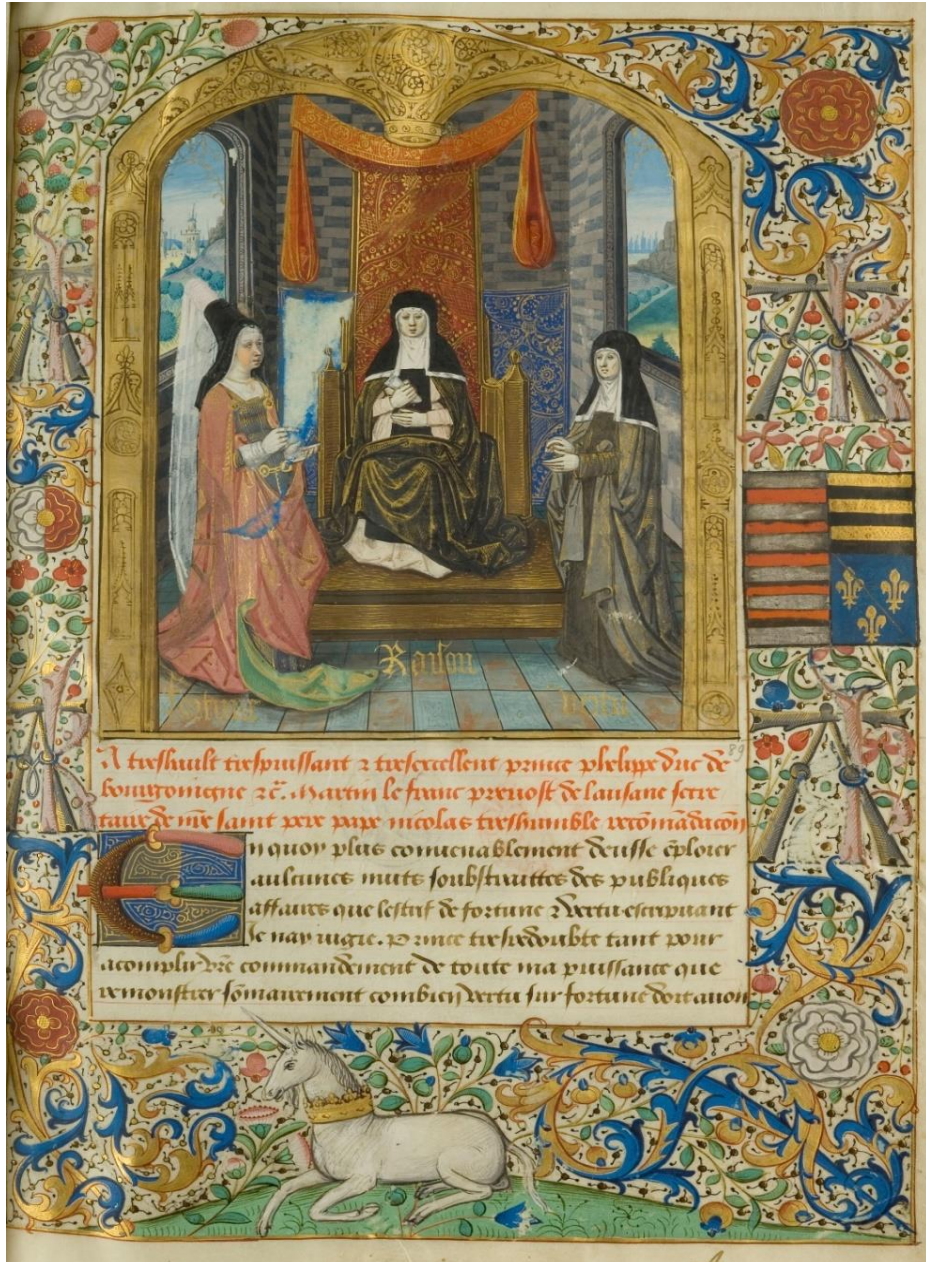 Raison
fortune vertu
89
A treshault trespuissant ⁊ tresexcellent prince phelippe duc de
bourgoingne ⁊c̃. Martin le franc prevost de lausane secre
taire de nr̃e saint pere pape nicolas treshumble recõmãdacõn
En quoy plus convenablement deusse ẽploier
aulcunes nuits soubstraittes des publiques
affaires que lestrif de fortune ⁊ vertu escripvant
Je nay jugie. Prince tresredoubte tant pour
acomplir vr̃e commandement de toute ma puissance que
remonstrer sõmairement combien vertu sur fortune doit avoir